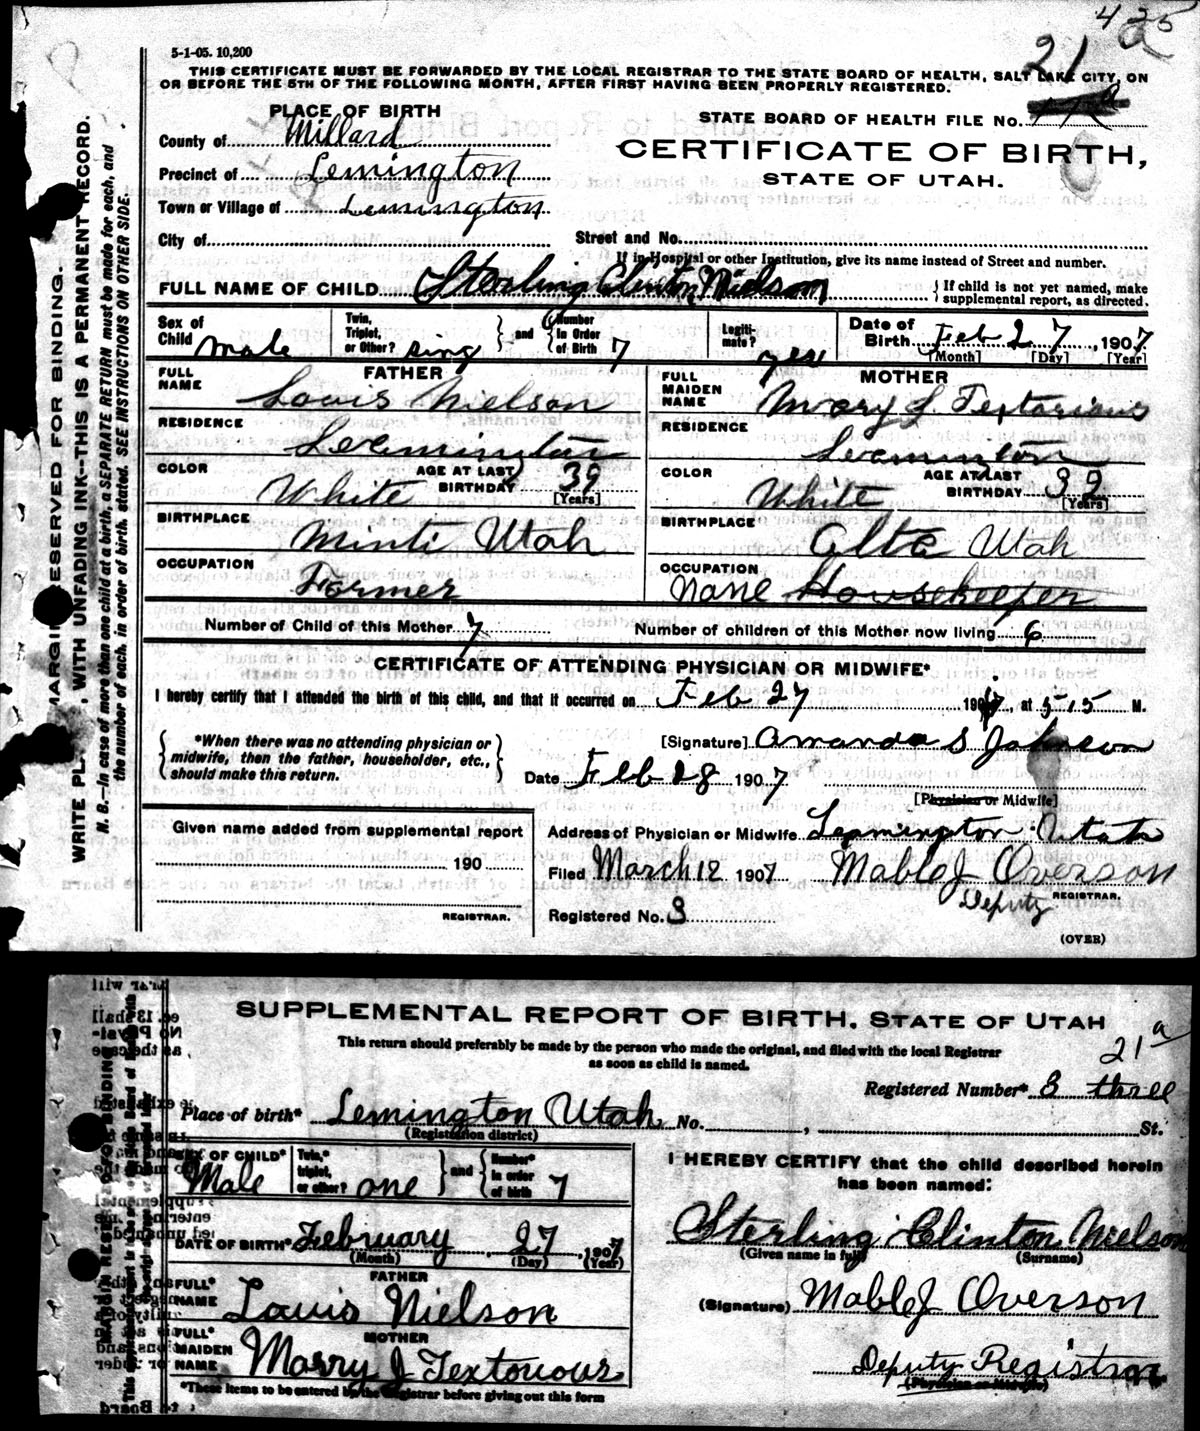 425
21 a
5-1-05. 10,200
THIS CERTIFICATE MUST BE FORWARDED BY THE LOCAL REGISTRAR TO THE STATE BOARD OF HEALTH, SALT LAKE CITY, ON
OR BEFORE THE 5TH OF THE FOLLOWING MONTH, AFTER FIRST HAVING BEEN PROPERLY REGISTERED.
PLACE OF BIRTH
County of Millard
STATE BOARD OF HEALTH FILE No.
CERTIFICATE OF BIRTH,
Precinct of Lemington
STATE OF UTAH.
Town or Village of Lemington
City of Street and No.
If in Hospital or other Institution, give its name instead of Street and number.
FULL NAME OF CHILD Sterling Clinton Nielson { If child is not yet named, make
supplemental report, as directed.
Sex of Child Male Twin, Triplet, or Other? sing } and { Number in Order of Birth 7 Legiti-mate? yes Date of Birth Feb 27, 1907
[Month] [Day] [Year]
FATHER MOTHER
FULL NAME Louis Nielson FULL MAIDEN NAME Mary J. Textorious
RESIDENCE Leamington RESIDENCE Leamington
COLOR White AGE AT LAST BIRTHDAY 39 [Years] COLOR White AGE AT LAST BIRTHDAY 39 [Years]
BIRTHPLACE Minti Utah BIRTHPLACE Alta Utah
OCCUPATION Farmer OCCUPATION None Housekeeper
Number of Child of this Mother 7 Number of children of this Mother now living 6
CERTIFICATE OF ATTENDING PHYSICIAN OR MIDWIFE*
I hereby certify that I attended the birth of this child, and that it occurred on Feb 27 1907, at 5-15 M.
{ *When there was no attending physician or
midwife, then the father, householder, etc.,
should make this return. }
[Signature] Amanda S Johnson
Date Feb 28 1907
[Physician or Midwife]
Given name added from supplemental report
190
REGISTRAR.
Address of Physician or Midwife Leamington Utah
Filed March 12 1907 Mable J Overson
Deputy REGISTRAR.
Registered No. 3
(OVER)
MARGIN RESERVED FOR BINDING.
WRITE PL , WITH UNFADING INK--THIS IS A PERMANENT RECORD.
N. B.--In case of more than one child at a birth, a SEPARATE RETURN must be made for each, and
the number of each, in order of birth, stated. SEE INSTRUCTIONS ON OTHER SIDE.
SUPPLEMENTAL REPORT OF BIRTH. STATE OF UTAH
This return should preferably be made by the person who made the original, and filed with the local Registrar
as soon as child is named.
21 a
Registered Number* 3 three
Place of birth* Lemington Utah, No. , St.
(Registration district)
SEX OF CHILD* Male Twin,* triplet, or other? one } and { Number* in order of birth 7
I HEREBY CERTIFY that the child described herein
has been named:
Sterling Clinton Nielson
(Given name in full) (Surname)
DATE OF BIRTH* February 27, 1907
(Month) (Day) (Year)
FATHER
FULL* NAME Louis Nielson
(Signature) Mable J Overson
MOTHER
FULL* MAIDEN NAME Marry J Textorious
Deputy Registrar
(Physician or Midwife)
*These items to be entered by the Registrar before giving out this form